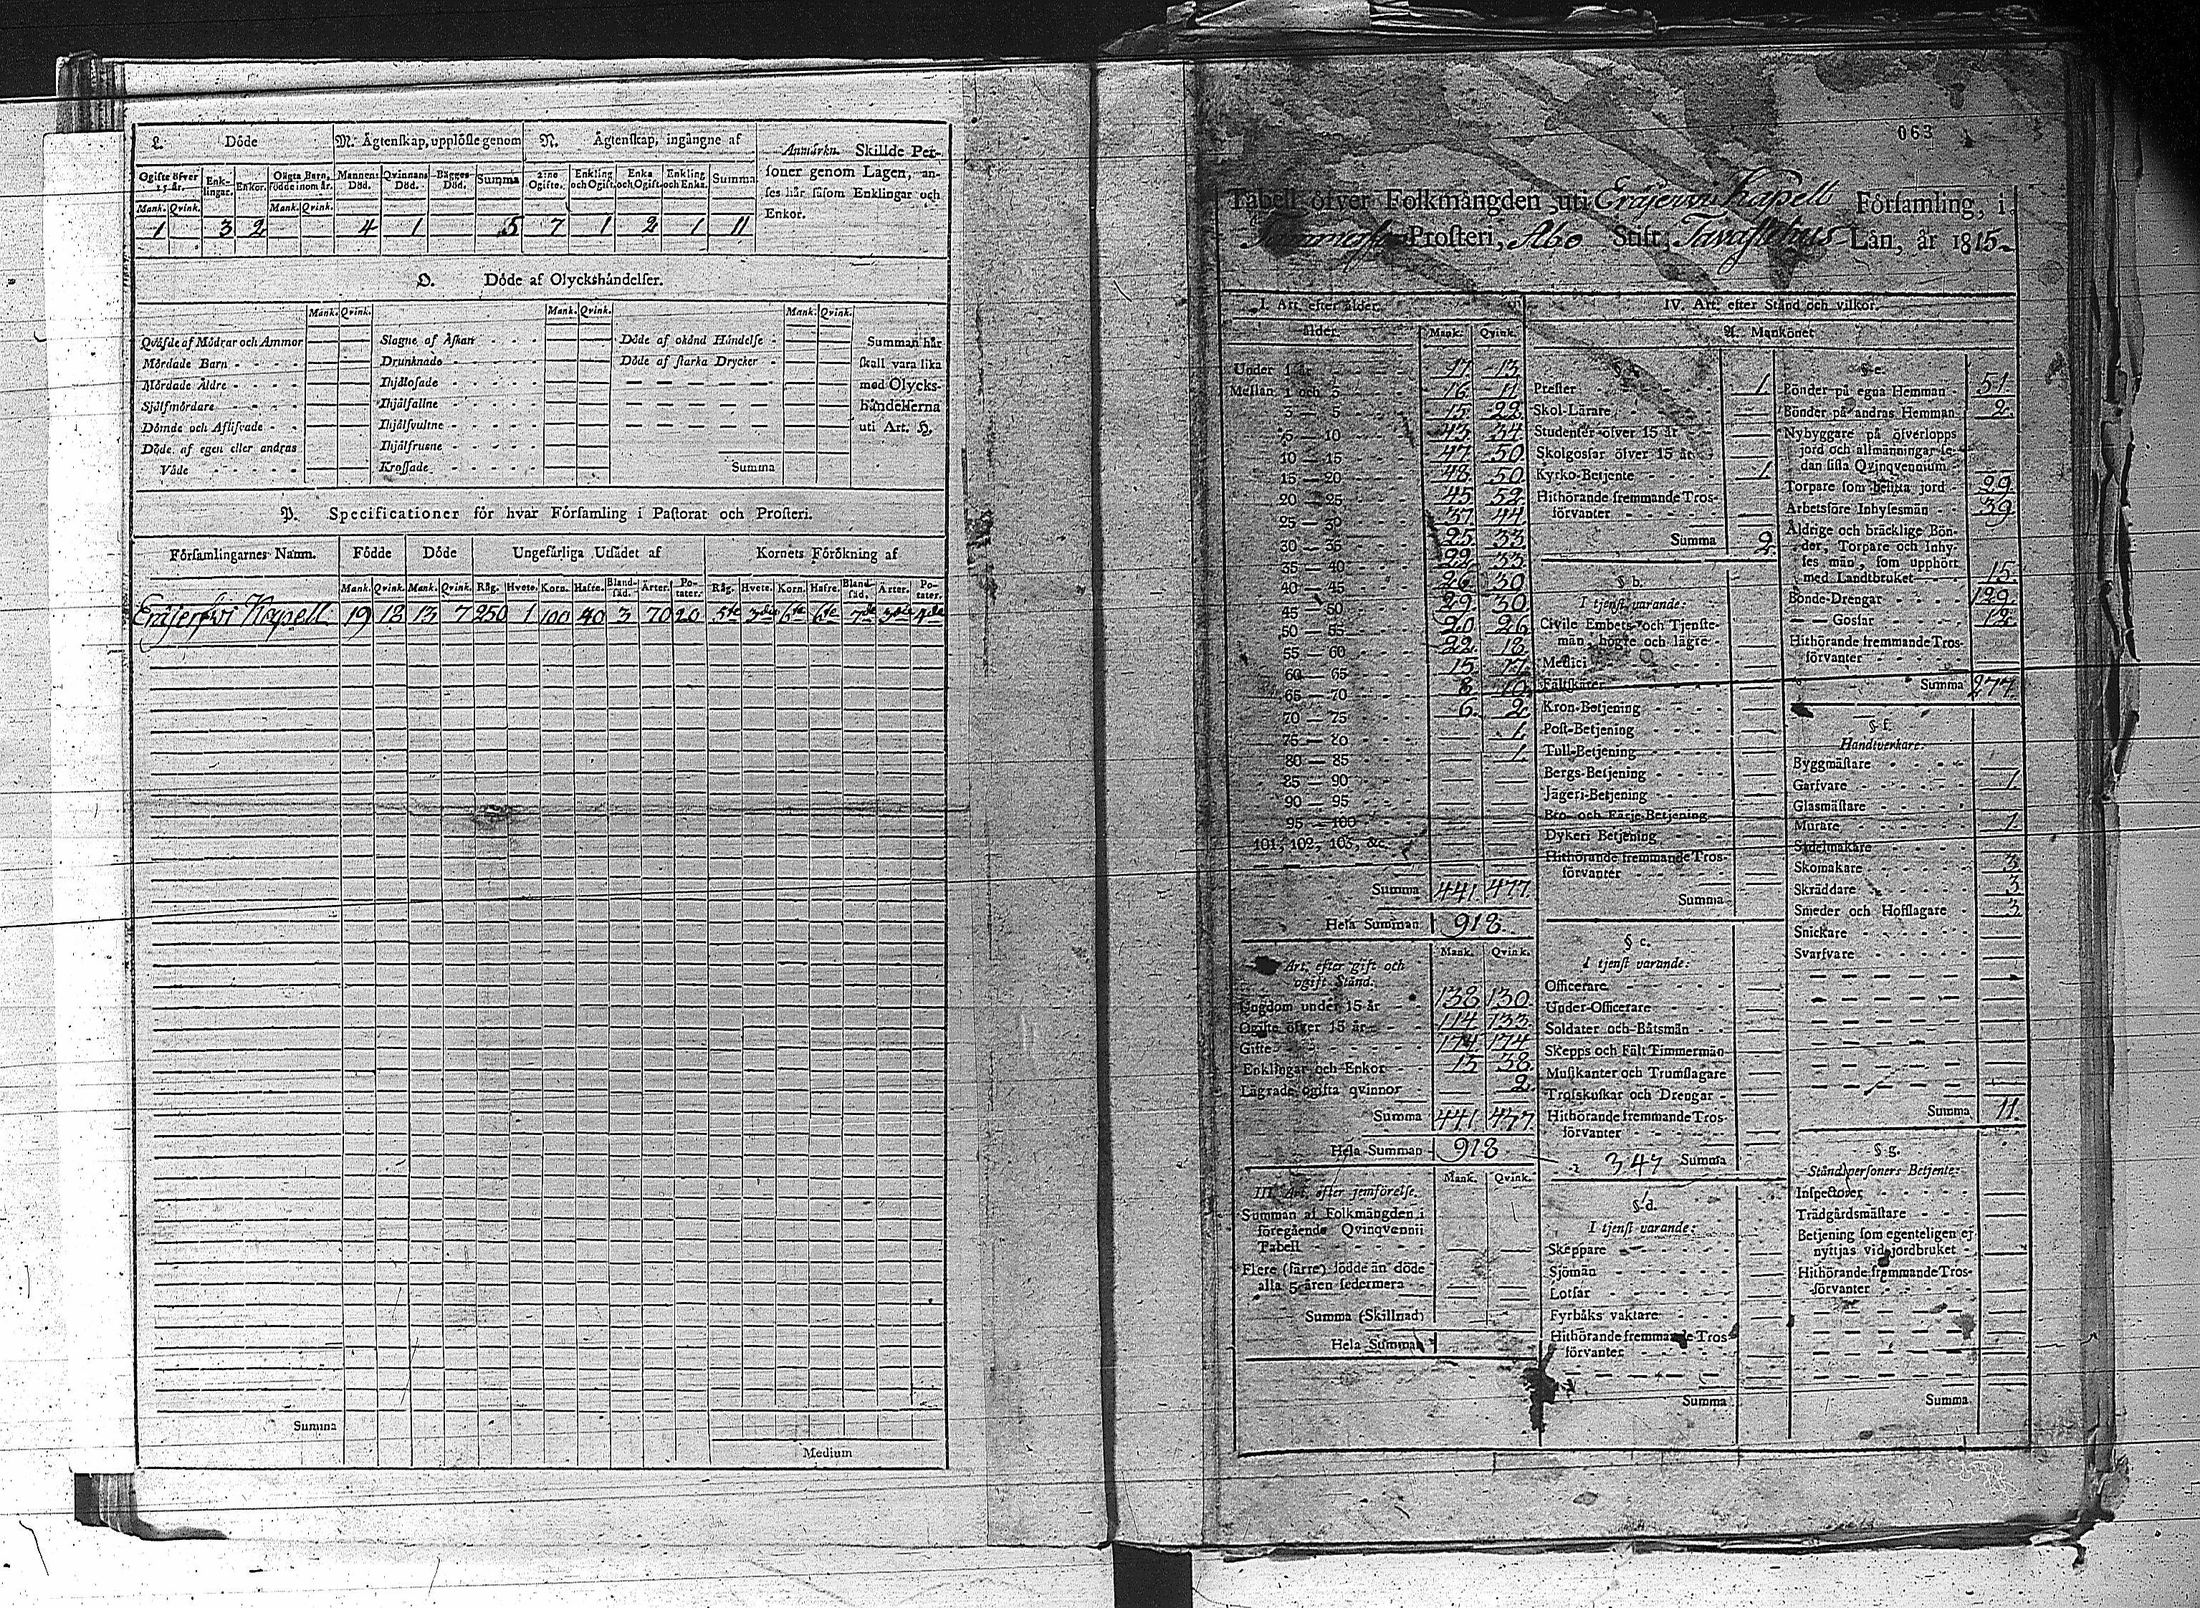 L. Döde
M. Ägtenskap, upplöste genom
N. Ägtenskap, ingångne af
Anmärkn. Skillde Per-
soner genom Lagen, an-
ses här såsom Enklingar och
Enkor.
Ogifte öfver 15 år. Enk-lingar. Enkor. Oägta Barn, födde inom år. Mannens Död. Qvinnans Död. Bägges Död. Summa 2:ne Ogifte. Enkling och Ogift. Enka och Ogift. Enkling och Enka. Summa
Mank. Qvink. Mank. Qvink.
1 3 2 4 1 5 7 1 2 1 11
O. Döde af Olyckshändelser.
Mank. Qvink. Mank. Qvink. Mank. Qvink.
Qväfde af Mödrar och Ammor
Mördade Barn
Mördade Äldre
Självmördare
Dömde och Aflifvade
Döde af egen eller andras
Våde
Slagne af Åskan
Drunknade
Ihjälfrusne
Krossade
Döde af okänd Händelse
Döde af starka Drycker
Summa
Summan här
skall vara lika
med Olycks-
händelserna
uti Art. H.
P. Specificationer för hvar Församling i Pastorat och Prosteri.
Församlingarnes Namn. Födde Döde Ungefärliga Utsädet af Kornets Förökning af
Mank. Qvink. Mank. Qvink. Råg. Hvete. Korn. Hafre. Bland-säd. Ärter. Po-tater. Råg. Hvete. Korn. Hafre. Bland-säd. Ärter. Po-tater.
Eräjerfvi Kapell 19 18 13 7 250 1 100 40 3 70 20 5te 3die 6te 6te 7de 3die 4de
Summa
Medium
063
Tabell öfver Folkmängden uti Eräjervi Kapells Församling, i
Prosteri, Åbo Stift, Tavastehus Län, år 1815.
I. Art. efter ålder.
ålder. Mank. Qvink.
Under 1 år 17 13
Mellan 1 och 3 16 11
3 — 5 15 22
5 — 10 43 34
10 — 15 47 50
15 — 20 48 50
20 — 25 45 52
25 — 30 37 44
30 — 35 25 33
35 — 40 22 33
40 — 45 26 30
45 — 50 29 30
50 — 55 20 26
55 — 60 22 18
60 — 65 15 17
65 — 70 8 10
70 — 75 6 2
75 — 80 1
80 — 85 1
85 — 90
90 — 95
95 — 100
101, 102, 103, &c.
Summa 441 477
Hela Summan 918
Mank. Qvink.
Art. efter gift och
ogift Stånd.
Ungdom under 15 år 138 130
Ogifte öfver 15 år 114 133
Gifte 174 174
Enklingar och Enkor 15 38
Lägrade ogifta qvinnor 2
Summa 441 477
Hela Summan 918
Mank. Qvink.
III. Art. efter jemförelse.
Summan af Folkmängden i
föregående Qvinqvennii
Tabell
Flere (färre) födde än döde
alla 5 åren sedermera
Summa (Skillnad)
Hela Summan
IV. Art. efter Stånd och vilkor.
A. Mankönet
Prester 1
Skol-Lärare
Studenter öfver 15 år
Skolgossar öfver 15 år
Kyrko-Betjente 1
Hithörande fremmande Tros-
förvanter
Summa 2
§ b.
I tjenst varande:
Civile Embets- och Tjenste-
män, högre och lägre
Medici
Fältskärer
Kron-Betjening
Post-Betjening
Tull-Betjening
Bergs-Betjening
Jägeri-Betjening
Bro- och Färje-Betjening
Dykeri Betjening
Hithörande fremmande Tros-
förvanter
Summa
§ c.
I tjenst varande:
Officerare
Under-Officerare
Soldater och Båtsmän
Skepps och Fält Timmermän
Musikanter och Trumslagare
Trosskuskar och Drengar
Hithörande fremmande Tros-
förvanter
347 Summa
§ d.
I tjenst varande:
Skeppare
Sjömän
Lotsar
Fyrbåks vaktare
Hithörande fremmande Tros-
förvanter
Summa
§ e.
Bönder på egna Hemman 51
Bönder på andras Hemman 2
Nybyggare på öfverlopps
jord och allmänningar se-
dan sista Qvinqvennium
Torpare som besitta jord 29
Arbetsföre Inhysesmän 39
Åldrige och bräcklige Bön-
der, Torpare och Inhy-
ses män, som upphört
med Landtbruket 15
Bonde-Drengar 129
— Gossar 12
Hithörande fremmande Tros-
förvanter
Summa 277
§ f.
Handtverkare:
Byggmästare
Garfvare 1
Glasmästare
Murare 1
Sadelmakare
Skomakare 3
Skräddare 3
Smeder och Hofslagare 3
Snickare
Svarfvare
Summa 11
§ g.
Ståndspersoners Betjente:
Inspectorer
Trädgårdsmästare
Betjening som egenteligen ej
nyttjas vid jordbruket
Hithörande fremmande Tros-
förvanter
Summa